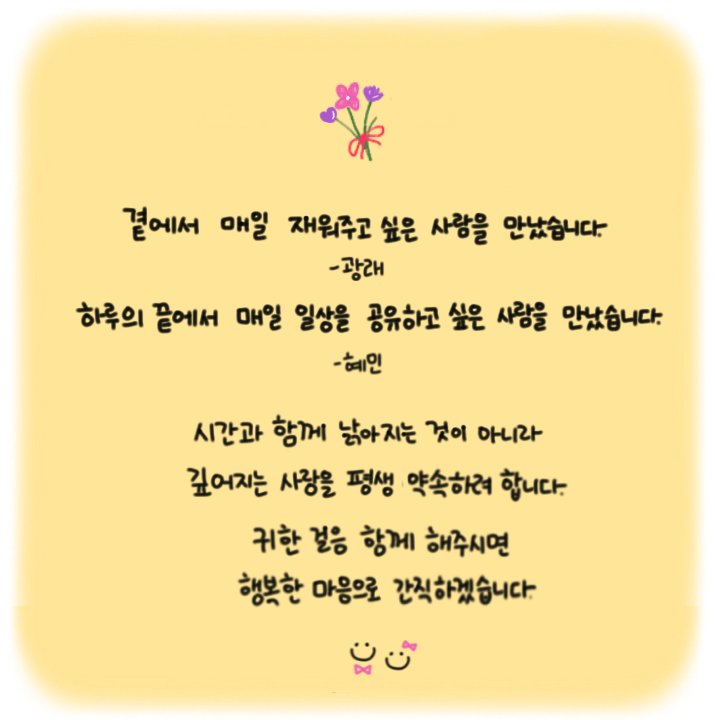 곁에서 매일 재워주고 싶은 사람을 만났습니다.
-광래
하루의 끝에서 매일 일상을 공유하고 싶은 사람을 만났습니다.
-혜민
시간과 함께 낡아지는 것이 아니라
깊어지는 사랑을 평생 약속하려 합니다.
귀한 걸음 함께 해주시면
행복한 마음으로 간직하겠습니다.